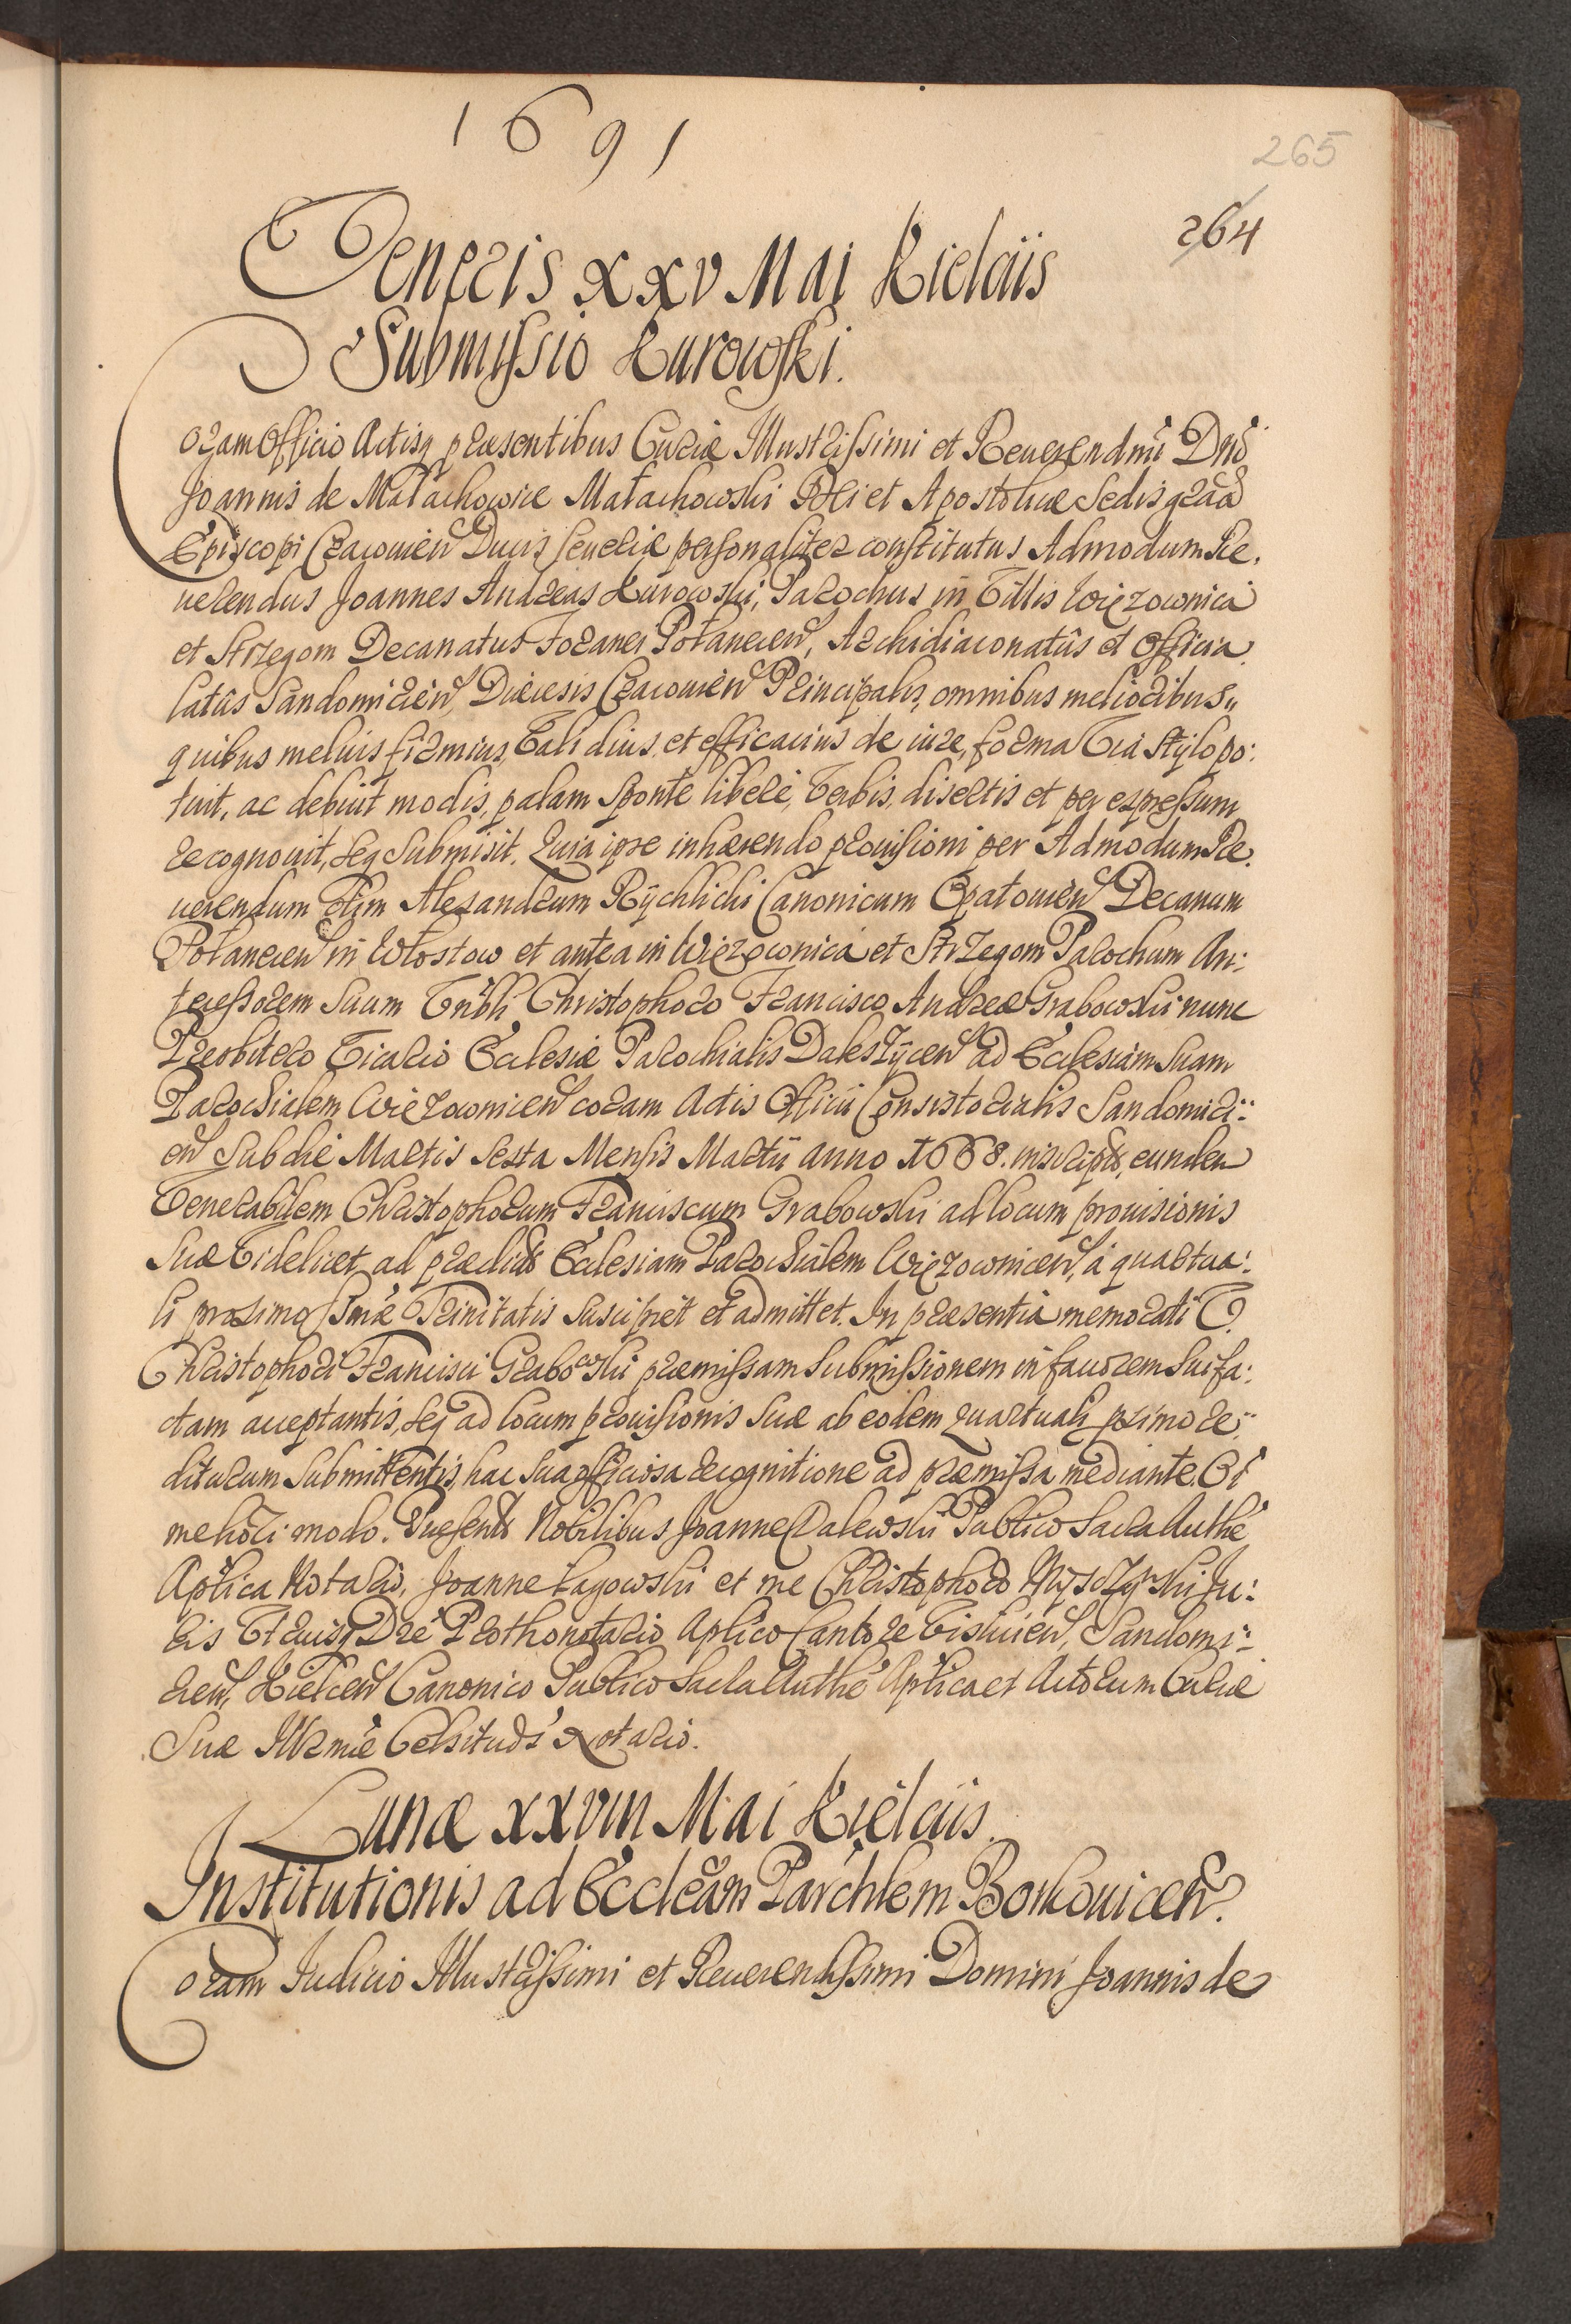 1691
265
264
Veneris XXV Mai Kielciis
Submissio Kurowski.
Coram Officio Actisq præsentibus Curiæ Illustrissimi et Reuerendmi Dni
Joannis de Małachowice Małachowski Dei et Apostolicæ Sedis graa
Episcopi Cracouien Ducis Seueriæ personaliter constitutus Admodum Re.
uerendus Joannes Andreas Kurowski, Parochus in Villis Więzownica
et Strzegom Decanatus Foranei Połanecen, Archidiaconatûs et Officia
latûs Sandomirien, Diæcesis Cracouien Principalis, omnibus melioribus,,
quibus melius firmius, Validius, et efficacius de iure, forma Via Stylo po:
tuit, ac debuit modis, palam Sponte libere, Verbis, disertis et per expressum
recognouit, seq Submisit. Quia ipse inhærendo prouisioni per Admodum Re.
uerendum olim Alexandrum Rÿchlicki Canonicum Opatouien Decanum
Połanecen in Włostow et antea in Więzownica et Strzegom Parochum An:
tecessorem Suum Vnbli Christophoro Francisco Andreæ Grabowski nunc
Præsbitero Vicario Ecclesiæ Parochialis Daleszÿcen ad Ecclesiam Suam
Parochialem Więzownicen coram Actis Officii Consistorialis Sandomiri:
en Sub die Martis Sexta Mensis Martii anno 1668. inscripto, eunden
Venerabilem Christophorum Franciscum Grabowski ad locum prouisionis
Suæ Videlicet ad prædict Ecclesiam Parochialem Więzownicen, à quartua:
li proximo Smæ Trinitatis suscipiet et admittet. In præsentia memorati V.
Christophori Francisci Grabowski præmissam Submissionem in fauorem Sui fa:
ctam acceptantis, seq ad locum prouisionis Suæ ab eodem quartuali pximo re:
diturum Submittentis, hac sua officiosa recognitione ad præmissa mediante. Et
meliori modo. Præsent Nobilibus Joanne Dalewski Publico Sacra Authe
Aplica Notario, Joanne Łagowski et me Christophoro Myszÿnski Ju:
ris Vtriusq Dre Prothonotario Aplico Cantore Vislicien, Sandomi:
rien, Kielcen Canonico Publico Sacra Authe Aplica et Actorum Curiæ
Suæ Illrmæ Celsituds Notario.
Lunæ XXVIII Mai Kielciis.
Institutionis ad Eccleam Parchlem Borkouicen.
Coram Iudicio Illustrissimi et Reuerendissimi Domini Joannis de